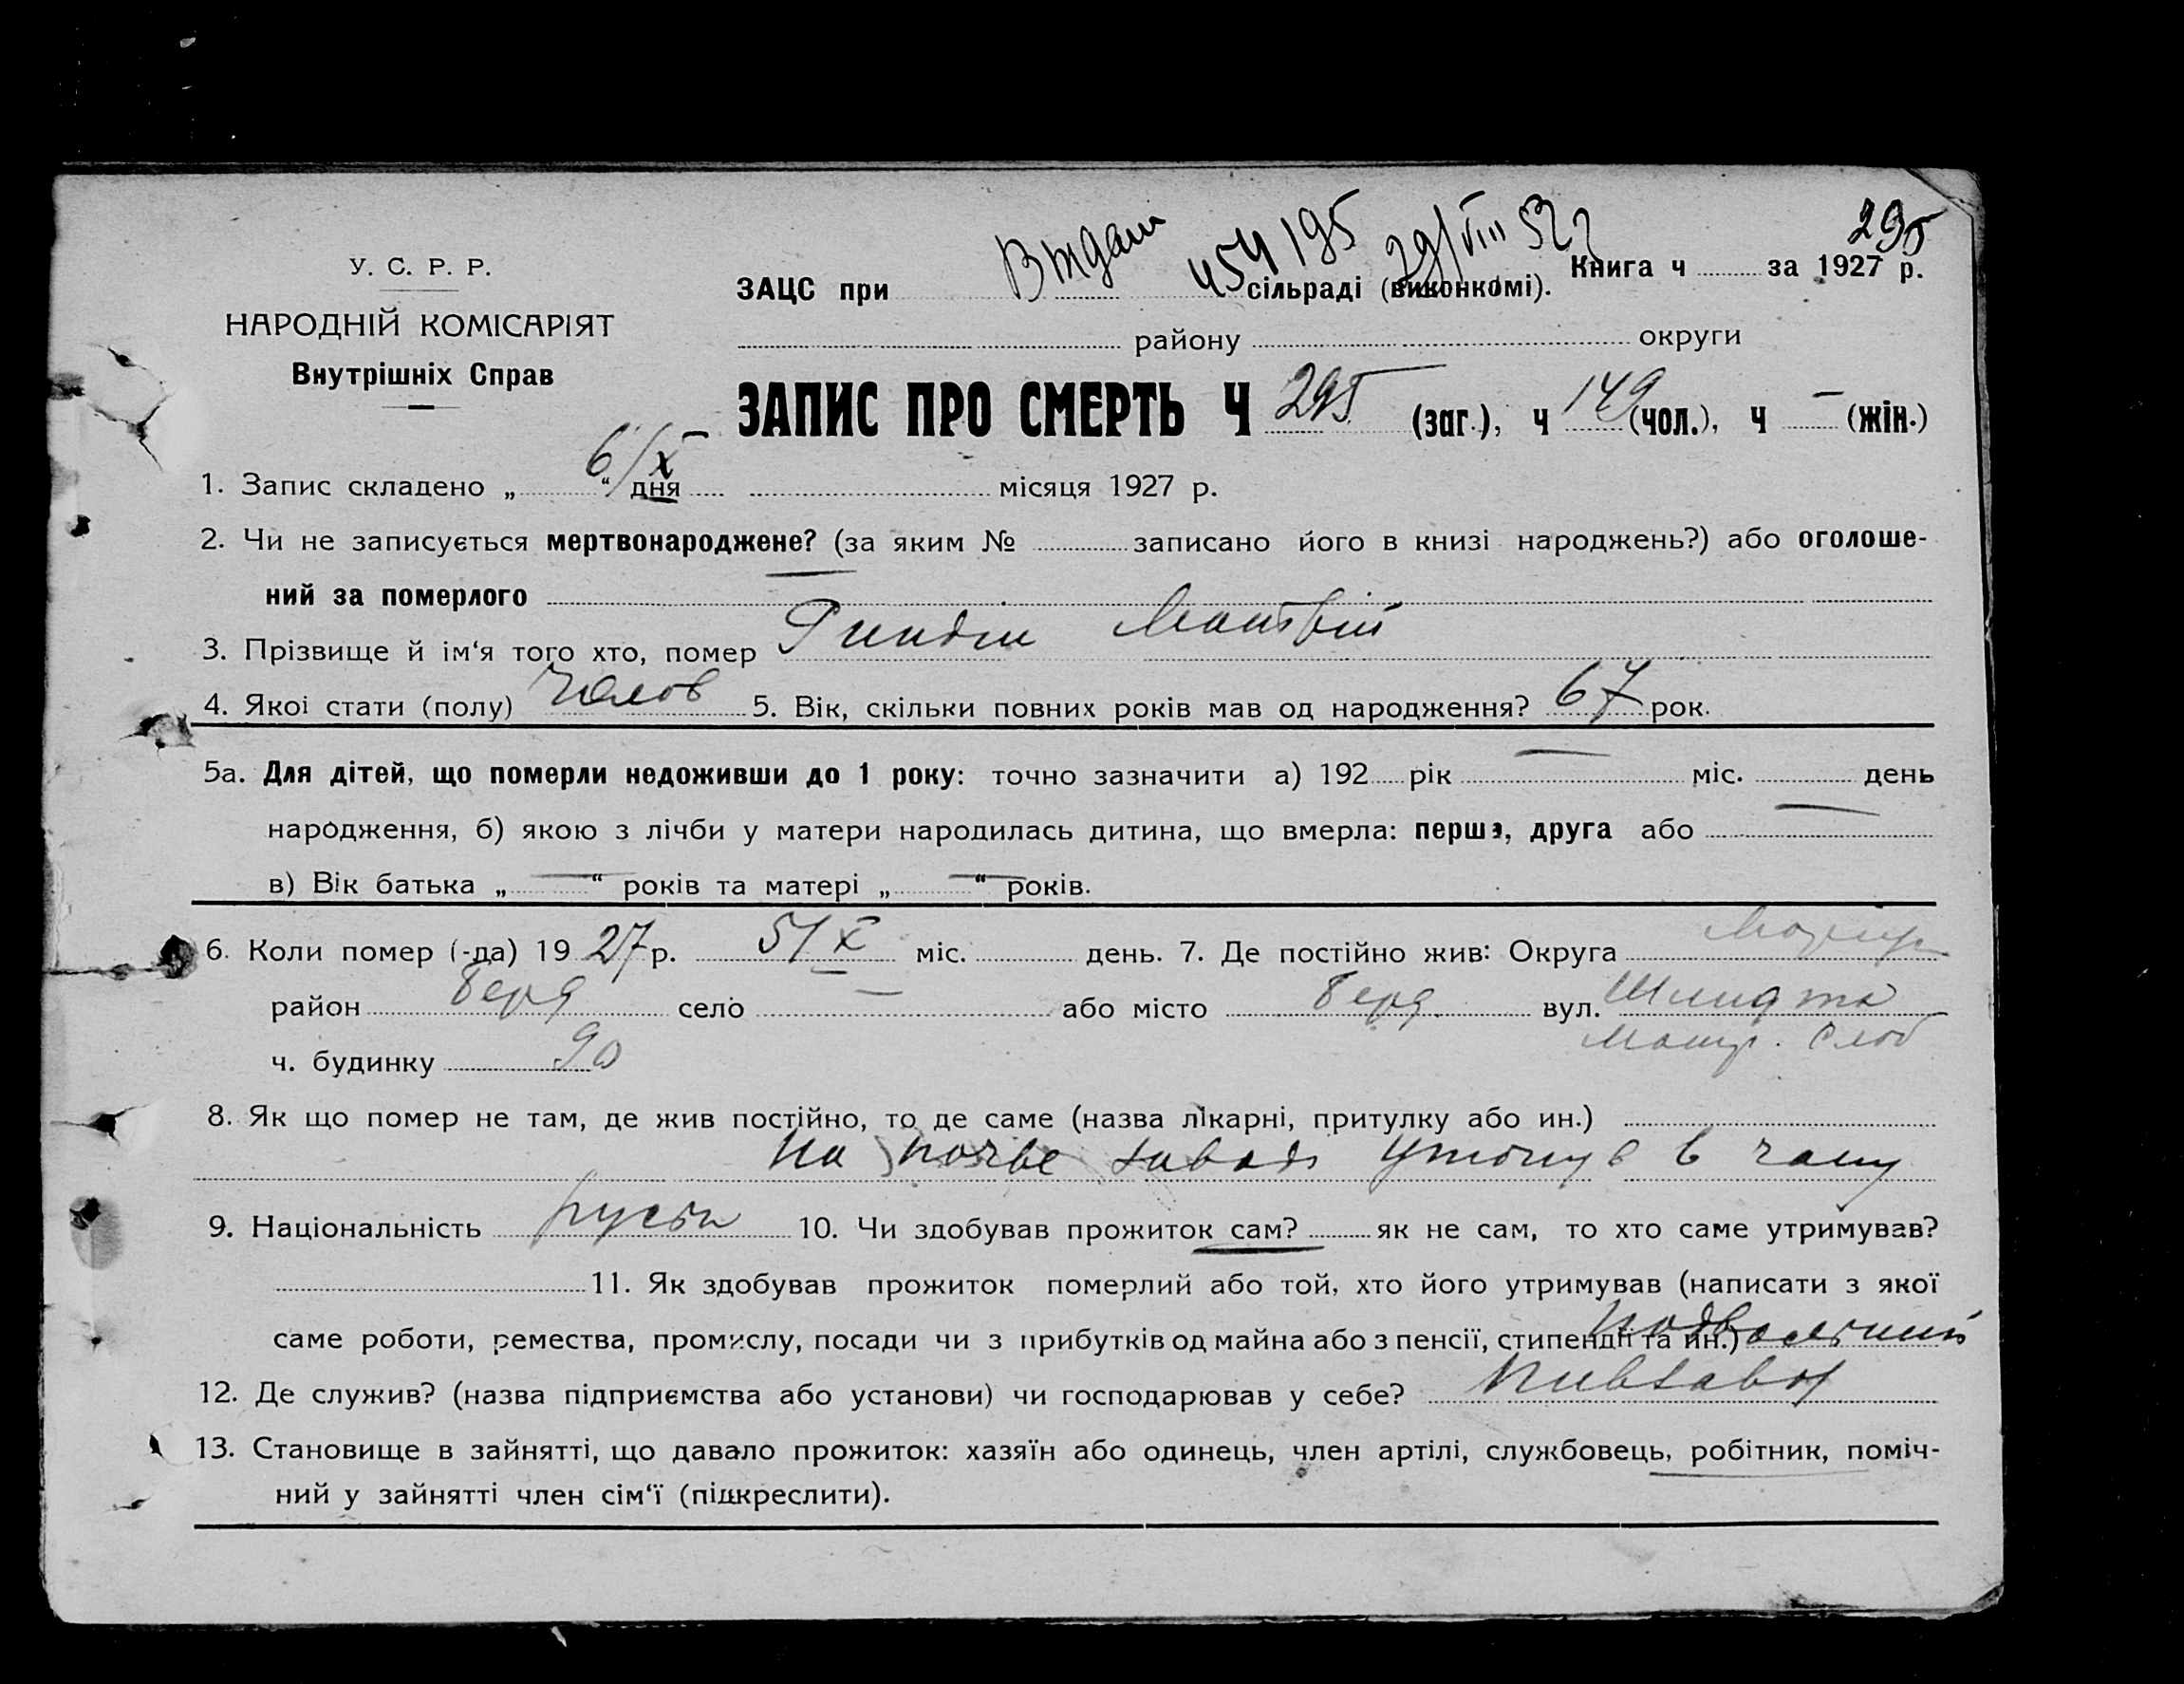 295
454 195 29/VIII 52 г
У. С. Р. Р.
НАРОДНІЙ КОМІСАРІЯТ
Внутрішніх Справ
ЗАЦС при сільраді (виконкомі). Книга ч за 1927 р.
району округи
ЗАПИС ПРО СМЕРТЬ Ч 295 (заг.), ч 149 (чол.), ч — (жін.)
1. Запис складено „ 6/X “ дня місяця 1927 р.
2. Чи не записується мертвонароджене? (за яким № записано його в книзі народжень?) або оголоше-
ний за померлого —
3. Прізвище й ім‘я того хто, помер Матвій
4. Якої стати (полу) Чолов 5. Вік, скільки повних років мав од народження? 67 рок.
5а. Для дітей, що померли недоживши до 1 року: точно зазначити а) 192 рік — міс. день
народження, б) якою з лічби у матери народилась дитина, що вмерла: перша, друга або —
в) Вік батька „ — “ років та матері „ — “ років.
6. Коли помер (-да) 19 27 р. 5/X міс. день. 7. Де постійно жив: Округа
район Берд село — або місто Берд. вул. Шмидта
ч. будинку 90 слоб
8. Як що помер не там, де жив постійно, то де саме (назва лікарні, притулку або ин.)
На заводі утонув в чану
9. Національність руськ 10. Чи здобував прожиток сам? як не сам, то хто саме утримував?
11. Як здобував прожиток померлий або той, хто його утримував (написати з якої
саме роботи, ремества, промислу, посади чи з прибутків од майна або з пенсії, стипендії та ин.)
12. Де служив? (назва підприємства або установи) чи господарював у себе? Пивзавод
13. Становище в зайнятті, що давало прожиток: хазяїн або одинець, член артілі, службовець, робітник, поміч-
ний у зайнятті член сім‘ї (підкреслити).